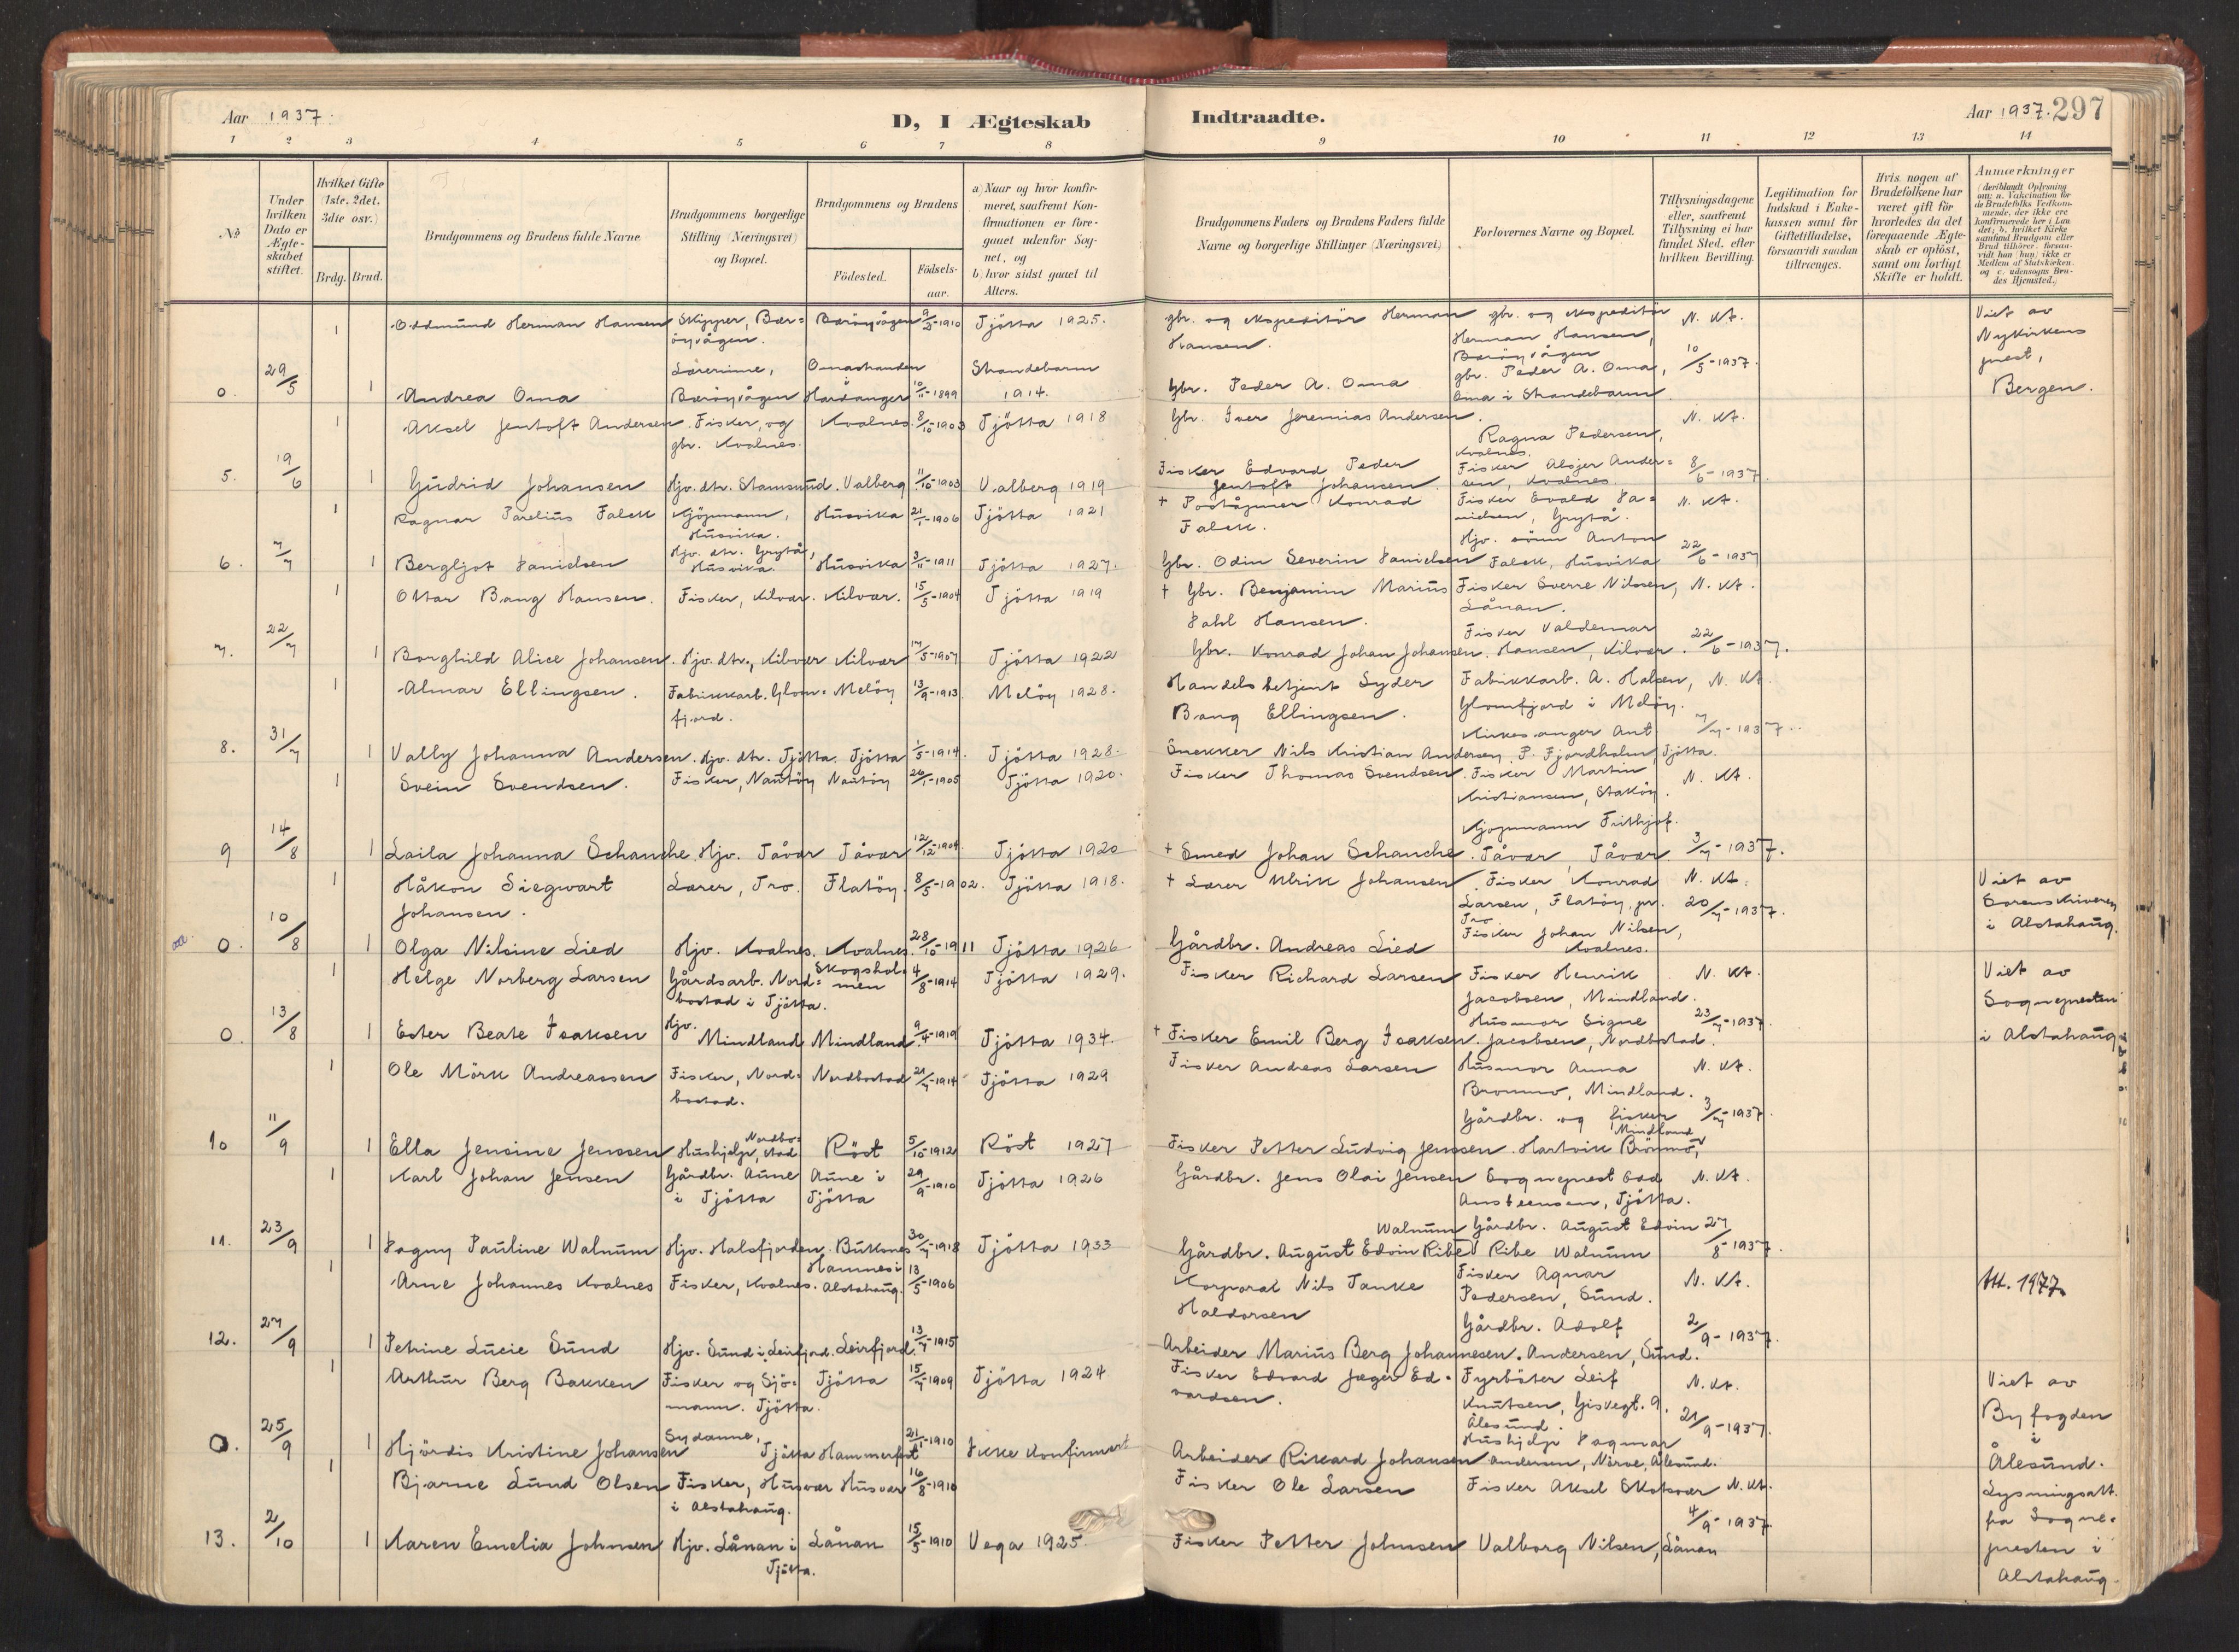 Aar 1937.
D, I Ægteskab
Indtraadte.
Aar 1937. 297
1 2 3 4 5 6 7 8 9 10 11 12 13 14
No
Under hvilken Dato er Ægteskabet stiftet.
Hvilket Gifte (1ste, 2det, 3die osv.)
Brdg. Brud.
Brudgommens og Brudens fulde Navne
Brudgommens borgerlige Stilling (Næringsvei) og Bopæl.
Brudgommens og Brudens
Födested.
Födsels-aar.
a) Naar og hvor konfirmeret, saafremt Konfirmationen er foregaaet udenfor Sognet, og
b) hvor sidst gaaet til Alters.
Brudgommens Faders og Brudens Faders fulde Navne og borgerlige Stillinger (Næringsvei)
Forlovernes Navne og Bopæl.
Tillysningsdagene eller, saafremt Tillysning ei har fundet Sted, efter hvilken Bevilling.
Legitimation for Indskud i Enkekassen samt for Giftetilladelse, forsaavidt saadan tiltrænges.
Hvis nogen af Brudefolkene har været gift för hvorledes da det foregaaende Ægteskab er oplöst, samt om lovligt Skifte er holdt.
Anmærkninger (deriblandt Oplysning om: a. Vakcination for de Brudefolks Vedkommende, der ikke ere konfirmerede her i Landet; b. hvilket Kirkesamfund Brudgom eller Brud tilhörer, forsaavidt han (hun) ikke er Medlem af Statskirken, og c. udensogns Brudes Hjemsted.)
1 Oddmund Herman Hansen Skipper, Bæröyvågen. Bæröyvågen 9/2-1910 Tjötta 1925. gbr. og ekspeditör Herman Hansen. gbr. og ekspeditör Herman Hansen, Bæröyvågen N. Kt. Viet av Nykirkens prest, Bergen.
0. 29/5 1 Andrea Oma Lærerinne, Bæröyvågen Omastranden Hardanger 10/11-1899 Strandebarm 1914. Gbr. Peder A. Oma gbr. Peder A. Oma, Oma i Strandebarm. 10/5-1937.
1 Aksel Jentoft Andersen Fisker, og gbr. Kvalnes. Kvalnes. 8/10-1903 Tjötta 1918 Gbr. Iver Jeremias Andersen. Ragna Pedersen, Kvalnes. N. Kt.
5. 19/6 1 Gudrid Johansen Hjv. dtr. Stamsund. Valberg 11/10-1903 Valberg 1919 Fisker Edvard Peder Jentoft Johansen. Fisker Alsjer Andersen, Kvalnes. 8/6-1937.
1 Ragnar Parelius Falck Kjöpmann, Husvika. Husvika 21/1-1906 Tjötta 1921 + Poståpner Konrad Falck. Fisker Evald Danielsen, Grytå. N. Kt.
6. 7/7 1 Bergljot Danielsen Hjv. dtr. Grytå, Husvika. Husvika 3/11-1911 Tjötta 1927. Gbr. Odin Severin Danielsen Hjv. sönn Anton Falck, Husvika 22/6-1937
1 Ottar Bang Hansen. Fisker, Kilvær. Kilvær. 15/5-1904 Tjötta 1919 + Gbr. Benjamin Marius Dahl Hansen. Fisker Sverre Nilssen, Lånan. N. Kt.
7. 22/7 1 Borghild Alice Johansen. Hjv. dtr., Kilvær Kilvær 17/5-1907 Tjötta 1922 Gbr. Konrad Johan Johansen. Fisker Valdemar Hansen, Kilvær. 22/6-1937.
1 Almar Ellingsen. Fabrikkarb. Glomfjord. Melöy 13/9-1913. Melöy 1928. Handelsbetjent Syder Bang Ellingsen. Fabrikkarb. A. Halsen, Glomfjord i Melöy. N. Kt.
8. 31/7 1 Vally Johanna Andersen. Hjv. dtr. Tjötta. Tjötta 1/5-1914. Tjötta 1928. Snekker Nils Kristian Andersen Kirkesanger Ant. P. Fjordholm, Tjötta. 7/7-1937.
1 Svein Svendsen. Fisker, Nautöy Nautöy 26/1-1905 Tjötta 1920. Fisker Thomas Svendsen. Fisker Martin Kristiansen, Staköy. N. Kt.
9 14/8 1 Laila Johanna Schanche. Hjv. Tåvær Tåvær 12/12-1904 Tjötta 1920 + Smed Johan Schanche. Kjöpmann Frithjof Tåvær, Tåvær. 3/7-1937.
1 Håkon Siegwart Johansen. Lærer, Tro. Flatöy. 8/5-1902. Tjötta 1918. + Lærer Ulrik Johansen Fisker Konrad Larsen, Flatöy, pr. Tro N. Kt. Viet av Sorenskriveren i Alstahaug.
0. 10/8 1 Olga Nilsine Lied Hjv. Kvalnes. Kvalnes. 28/10-1911 Tjötta 1926 Gårdbr. Andreas Lied Fisker Johan Nilsen, Kvalnes. 20/7-1937.
1 Helge Norberg Larsen Gårdsarb. Nordbostad i Tjötta. Skogsholmen 4/8-1914 Tjötta 1929. Fisker Richard Larsen Fisker Henrik Jacobsen, Mindland. N. Kt. Viet av Sognepresten i Alstahaug
0. 13/8 1 Ester Beate Isaksen Hjv. Mindland Mindland. 9/4-1919 Tjötta 1934. + Fisker Emil Berg Isaksen. Husmor Signe Jacobsen, Nordbostad. 23/7-1937.
1 Ole Mörk Andreassen Fisker, Nordbostad. Nordbostad 21/7-1914 Tjötta 1929 Fisker Andreas Larsen Husmor Anna Brönmo, Mindland. N. Kt.
10 11/9 1 Ella Jensine Jenssen Hushjelp, Nordbostad Röst 5/10-1912 Röst 1927 Fisker Petter Ludvig Jenssen. Gårdbr. og fisker Hartvik Brönmo, Mindland 3/7-1937.
1 Karl Johan Jensen Gårdbr. Aune i Tjötta Aune i Tjötta 29/9-1910 Tjötta 1926 Gårdbr. Jens Olai Jensen Sogneprest Odd Amsteensen, Tjötta. N. Kt.
11. 23/9 1 Dagny Pauline Walnum Hjv. Halsfjorden. Buksnes 30/7-1918 Tjötta 1933 Gårdbr. August Edvin Ribe Walnum Gårdbr. August Edvin Ribe Walnum 27/8-1937.
1 Arne Johannes Kvalnes Fisker, Kvalnes. Hamnes i Alstahaug. 13/5-1906 Korporal Nils Tanke Haldorsen Fisker Agnar Pedersen, Sund. N. Kt. Att. 1977.
12. 27/9 1 Petrine Lucie Sund Hjv. Sund i Leirfjord. Leirfjord. 13/7-1915 Arbeider Marius Berg Johannesen. Gårdbr. Adolf Andersen, Sund. 2/9-1937.
1 Arthur Berg Bakken Fisker og Sjömann. Tjötta. Tjötta 15/7-1909 Tjötta 1924 Fisker Edvard Jæger Edvardsen. Fyrböter Leif Knutsen, Giskegt. 9. Ålesund. N. Kt. Viet av Byfogden i Ålesund.
0. 25/9 1 Hjördis Kristine Johansen Sydame, Tjötta Hammerfest 21/1-1910 Ikke konfirmert Arbeider Rikard Johansen Hushjelp Dagmar Andersen, Nörve, Ålesund. 21/9-1937.
1 Bjarne Lund Olsen Fisker, Husvær i Alstahaug. Husvær 16/8-1910 Fisker Ole Larsen Fisker Aksel Skotsvær N. Kt. Lysningsatt. fra Sognepresten i Alstahaug.
13. 2/10 1 Karen Emelia Johnsen Hjv. Lånan i Tjötta. Lånan 15/5-1910 Vega 1925. Fisker Petter Johnsen Valborg Nilsen, Lånan 4/9-1937